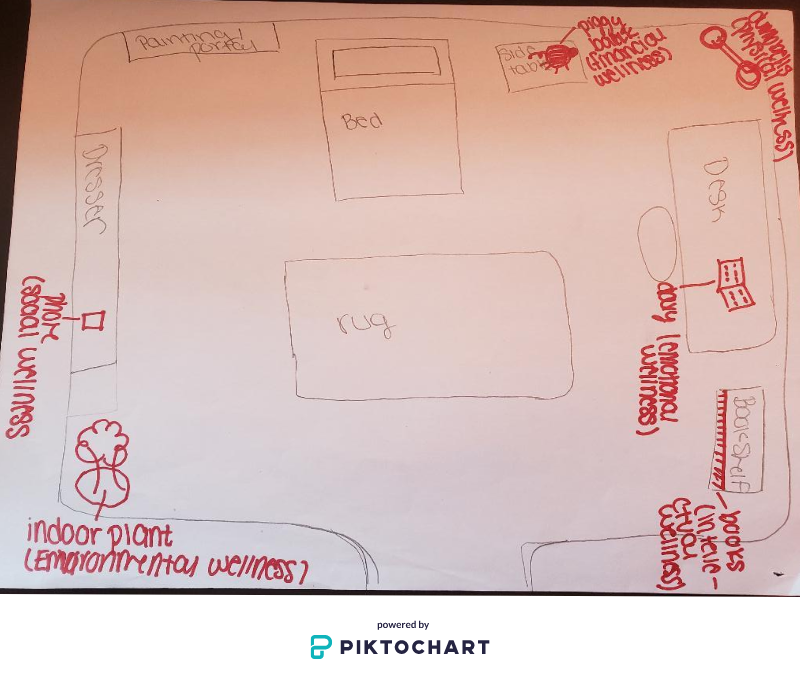 Painting/
portrey
Bed
Side
table
piggy
bank
(financial
wellness)
Dumbells
(physical wellness)
Dresser
Desk
phone
(social wellness
rug
diary (emotional
wellness)
BookShelf
books
(intelle-
ctual
wellness)
indoor plant
(Environmental wellness)
powered by
PIKTOCHART